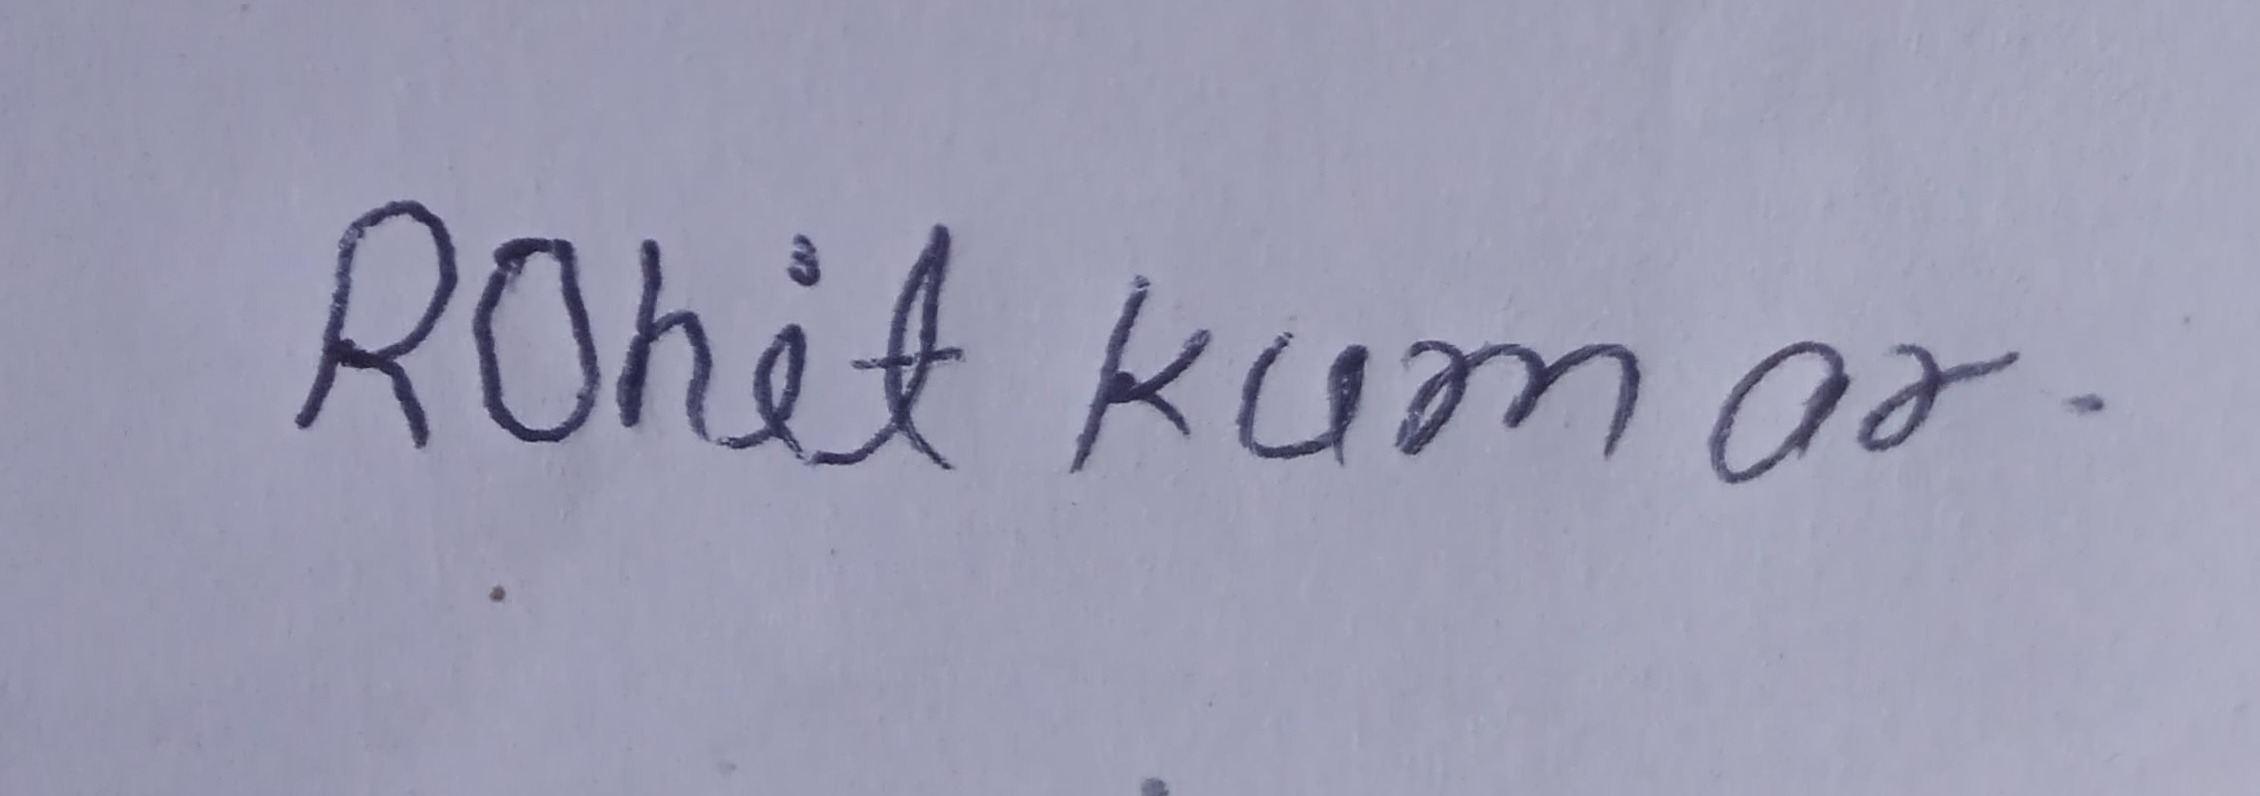 ROhit kumar.